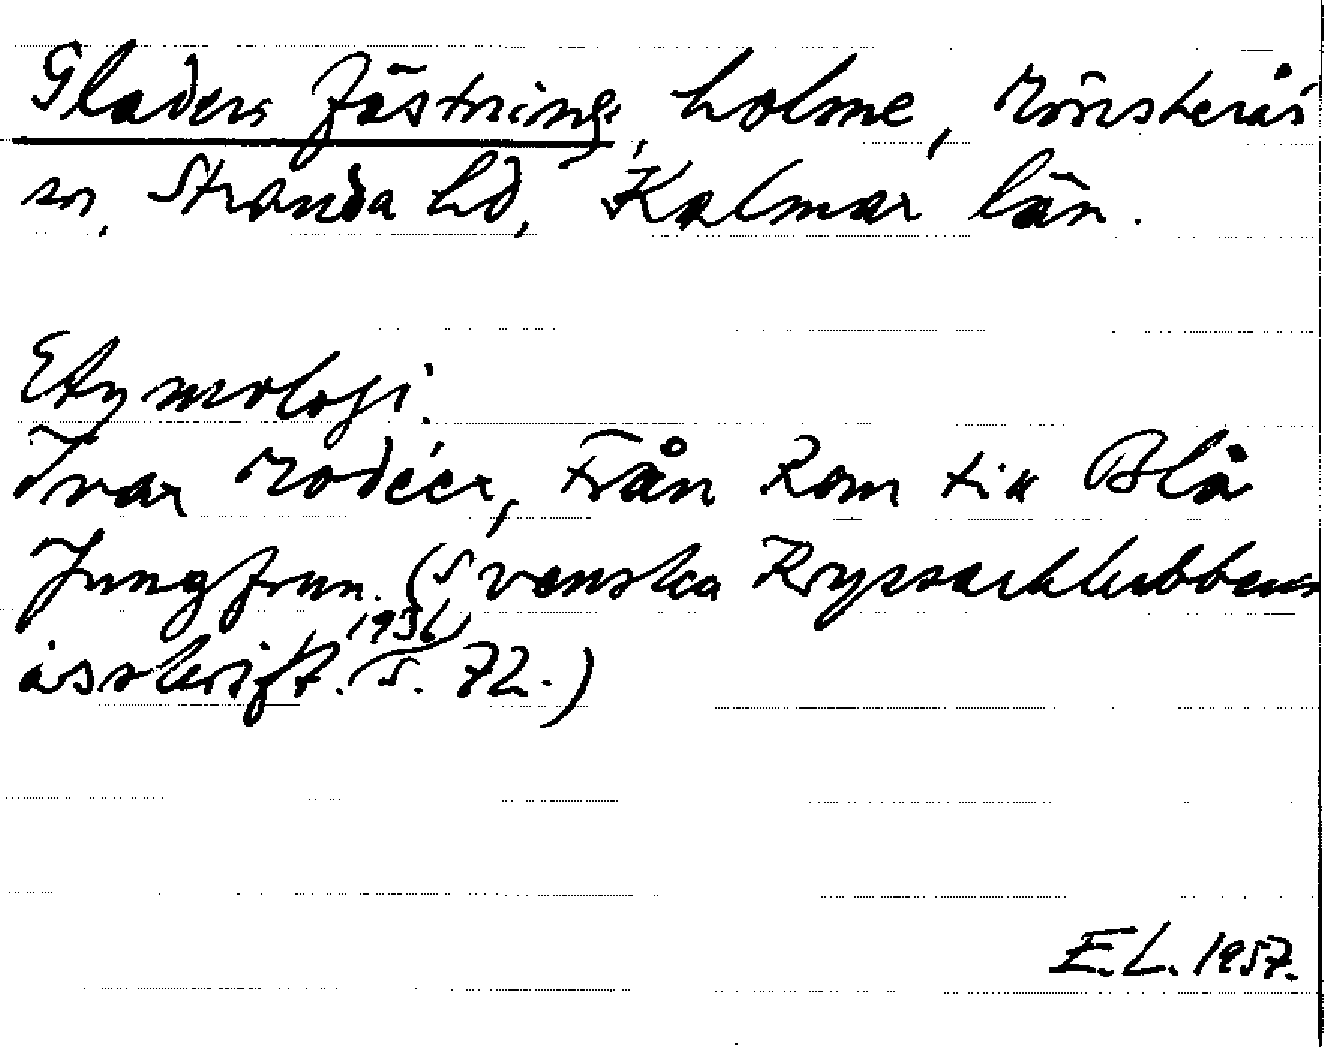 Gladers fästning, holme, Mönsterås
sn, Stranda hd, Kalmar län.
Etymologi.
Ivar Modéer, Från Kom till Blå
Jungfrun. (Svenska Kryssarklubbens
årsskrift. 1936, s. 72.)
E.L. 1957.